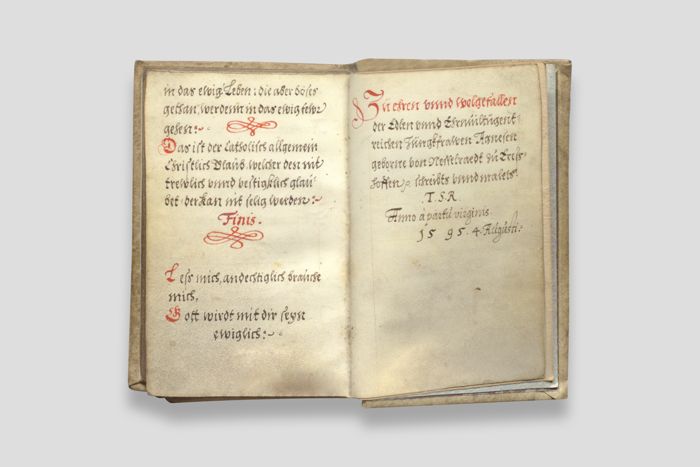 in das ewig Leben: die aber böses
gethan, werdenn in das ewig fewr
gehen:
Das ist der Catholisch allgemein
Christlich Glaub, welcher den nit
trewlich vnnd vestigklich glau-
bet, der kan nit selig werden:
Finis.
Less mich, andechtiglich brauche
mich,
Gott wirdt mit dir seyn
ewiglich:
Zu ehren vnnd wolgefallen
der Edlen vnnd Ehrnuiltugent
reichen Jungkfrawen Agnesen
geborne von Nesselraedt zu
hoffen schreibts vnnd malets
.T.S.R.
Anno à partu virginis
1595. 4. Augusti.